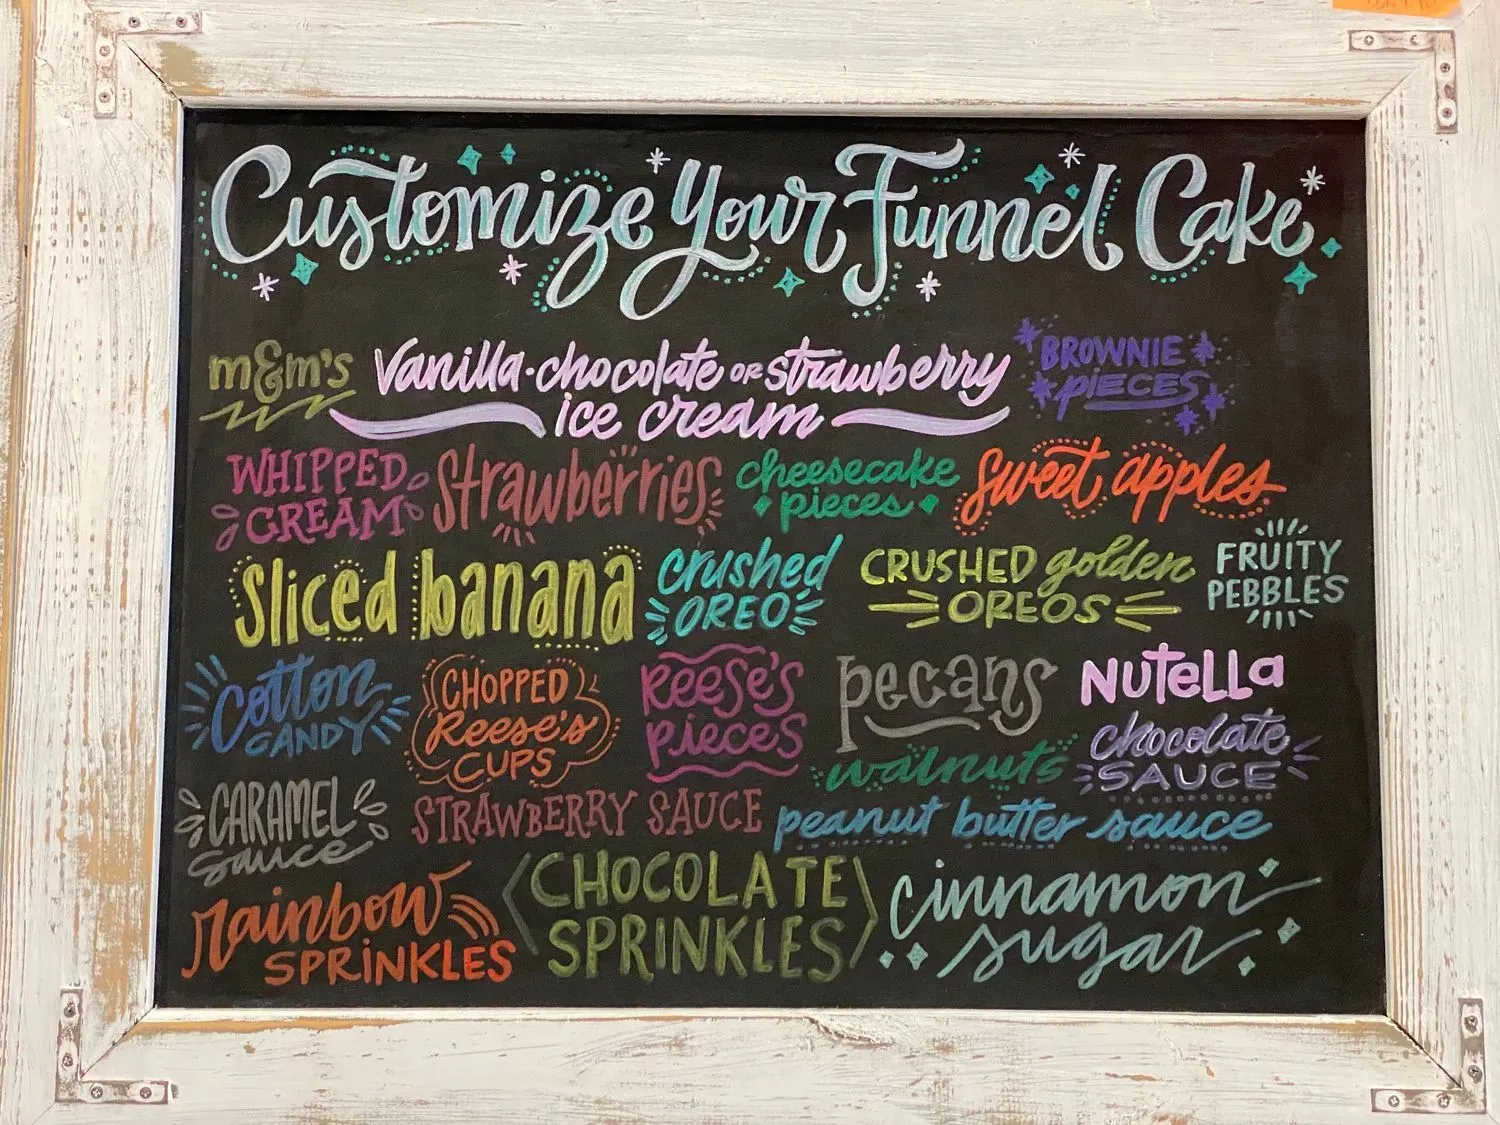 Customize Your Funnel Cake
m&m's
Vanilla · chocolate or strawberry
ice cream
BROWNIE
pieces
WHIPPED
CREAM
Strawberries
cheesecake
pieces
sweet apples
sliced banana
crushed
OREO
CRUSHED golden
OREOS
FRUITY
PEBBLES
Cotton
CANDY
CHOPPED
Reese's
CUPS
Reese's
pieces
pecans
walnuts
NUTELLA
chocolate
SAUCE
CARAMEL
sauce
STRAWBERRY SAUCE
peanut butter sauce
rainbow
SPRINKLES
CHOCOLATE
SPRINKLES
cinnamon
sugar